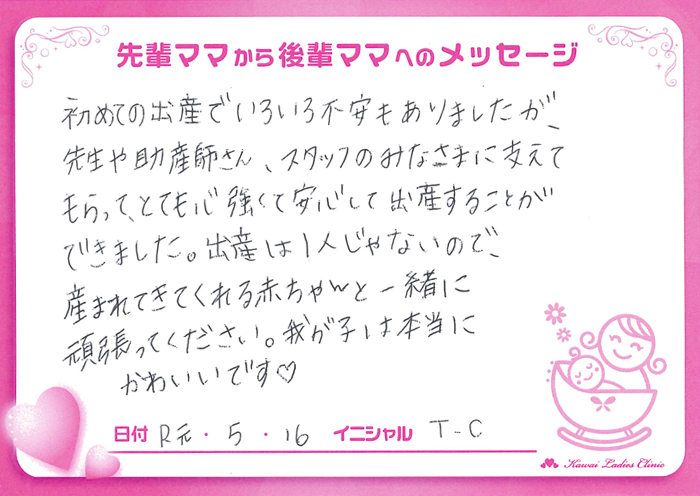 先輩ママから後輩ママへのメッセージ
初めての出産でいろいろ不安もありましたが、
先生や助産師さん、スタッフのみなさまに支えて
もらって、とても心強くて安心して出産することが
できました。出産は1人じゃないので、
産まれてきてくれる赤ちゃんと一緒に
頑張ってください。我が子は本当に
かわいいです♡
日付 R元・5・16 イニシャル T-C
Kawai Ladies Clinic